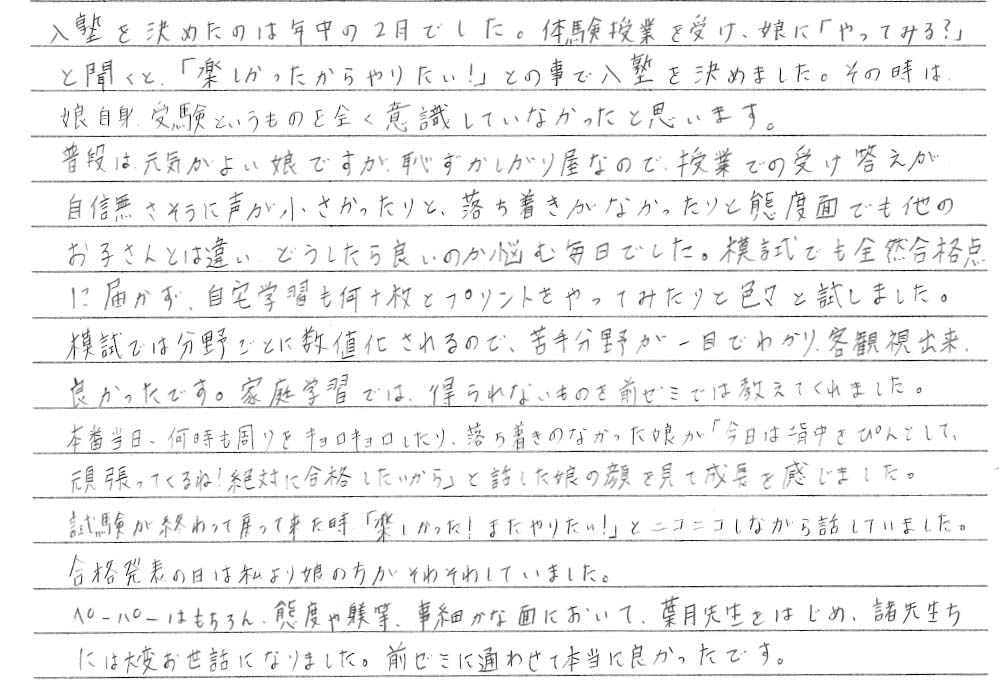 入塾を決めたのは年中の2月でした。体験授業を受け、娘に「やってみる?」
と聞くと、「楽しかったからやりたい!」との事で入塾を決めました。その時は、
娘自身、受験というものを全く意識していなかったと思います。
普段は、元気がよい娘ですが、恥ずかしがり屋なので、授業での受け答えが
自信無さそうに声が小さかったりと、落ち着きがなかったりと態度面でも他の
お子さんとは違い、どうしたら良いのか悩む毎日でした。模試でも全然合格点
に届かず、自宅学習も何十枚とプリントをやってみたりと色々と試しました。
模試では分野ごとに数値化されるので、苦手分野が一目でわかり、客観視出来、
良かったです。家庭学習では、得られないものを前ゼミでは教えてくれました。
本番当日、何時も周りをキョロキョロしたり、落ち着きのなかった娘が「今日は背中をぴんとして、
頑張ってくるね!絶対に合格したいから」と話した娘の顔を見て成長を感じました。
試験が終わって戻って来た時、「楽しかった!またやりたい!」とニコニコしながら話していました。
合格発表の日は私より娘の方がそわそわしていました。
ペーパーはもちろん、態度や躾等、事細かな面において、葉月先生をはじめ、諸先生ち
には大変お世話になりました。前ゼミに通わせて本当に良かったです。